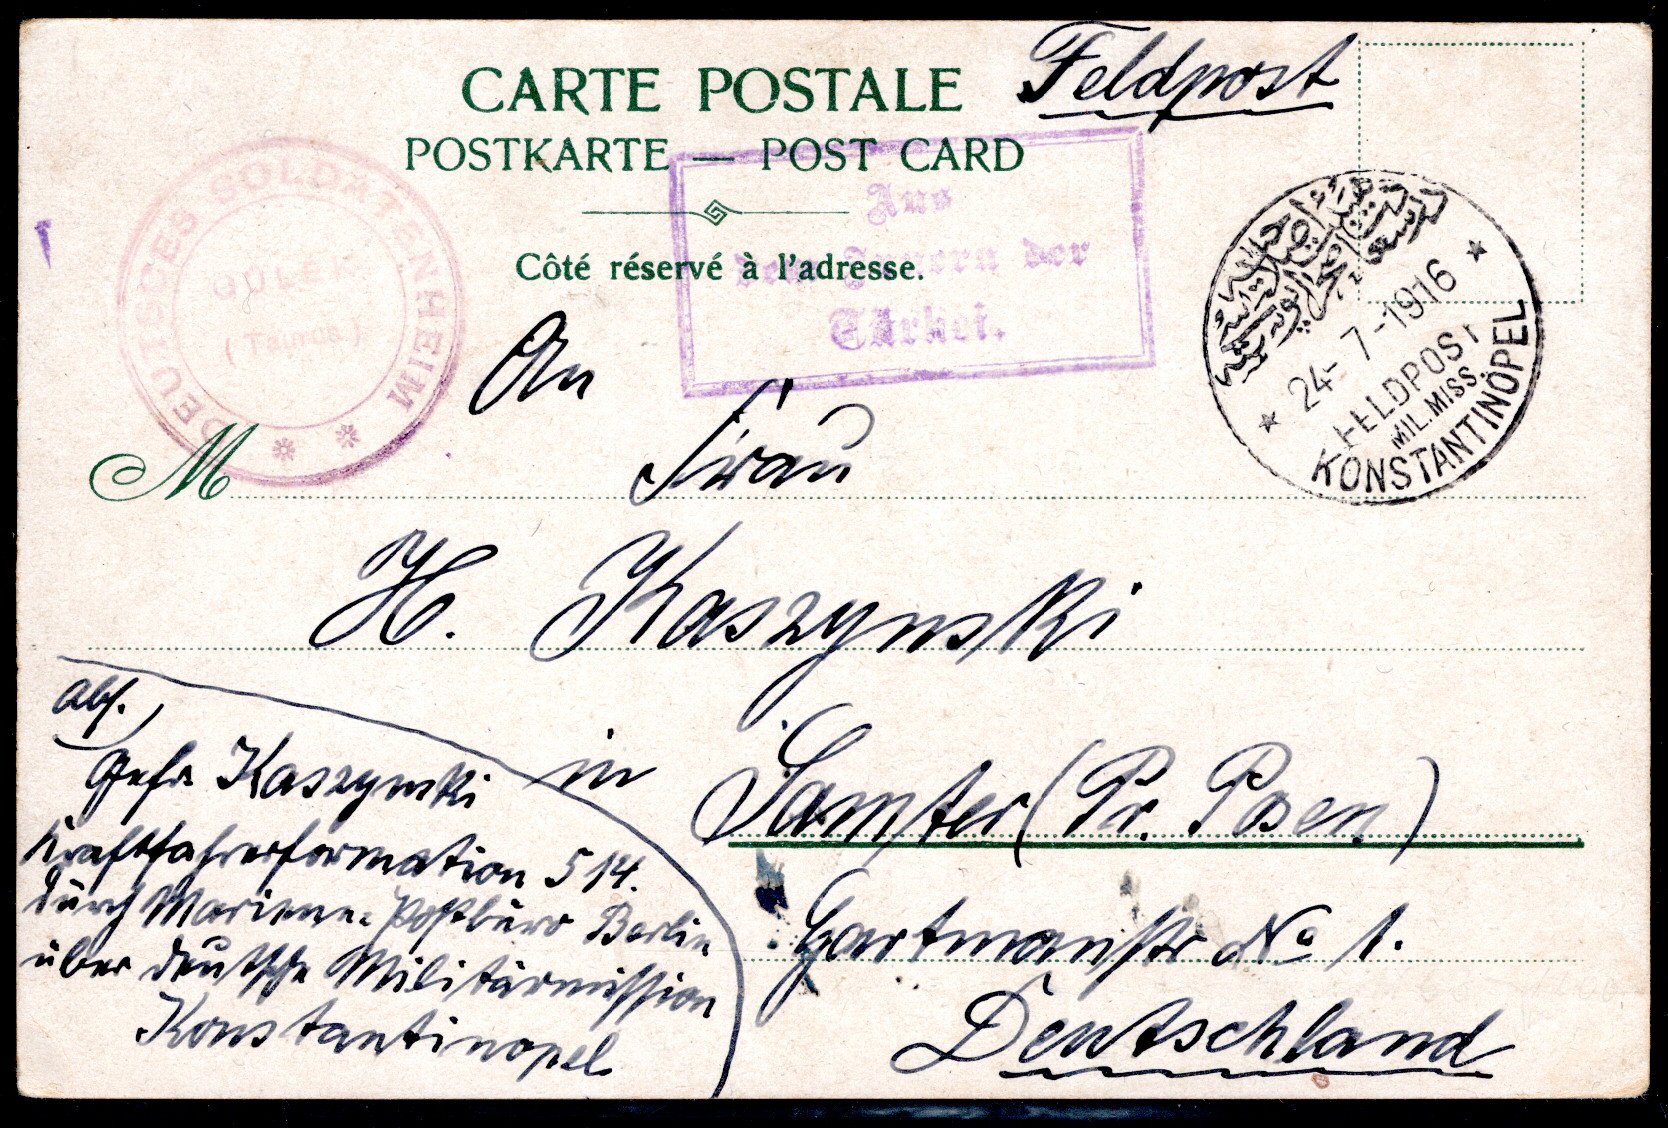 CARTE POSTALE
Feldpost
POSTKARTE — POST CARD
Côté réservé à l'adresse.
DEUTSCES SOLDATENHEIM
(Taurus)
Aus
dem Innern der
Türkei.
24-7-1916
FELDPOST
MIL. MISS.
KONSTANTINOPEL
An
M Frau
H. Kaszynski
in Samter (Pr. Posen)
Gartmanstr No 1.
Deutschland
Abs.
Gefr. Kaszynski
Kraftfahrerformation 514.
durch Marine-Postbüro Berlin
über deutsche Militärmission
Konstantinopel